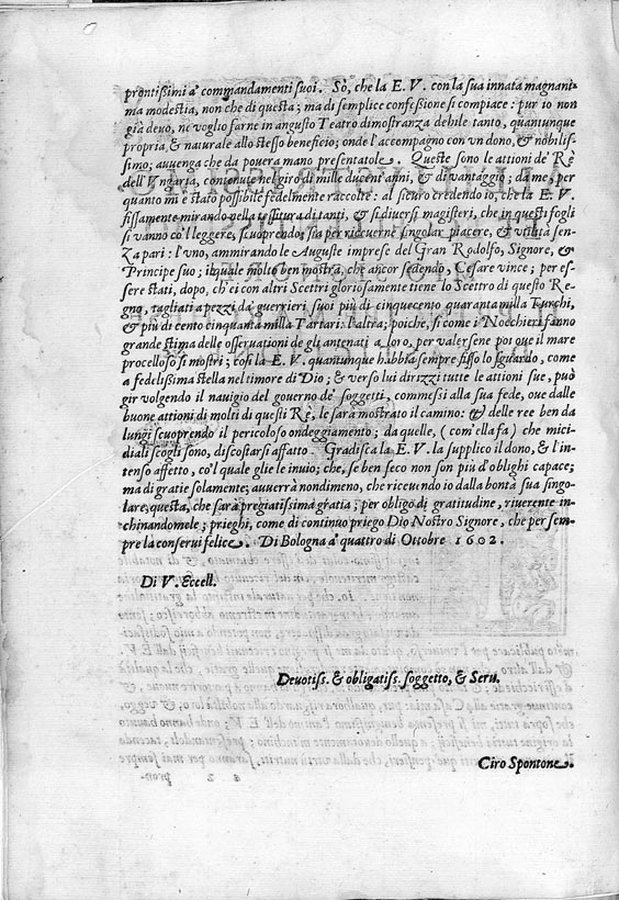 prontißimi a' commandamenti suoi. Sò, che la E. V. con la sua innata magnani-
ma modestia, non che di questa; ma di semplice confeßione si compiace: pur io non
già deuo, ne voglio farne in angusto Teatro dimostranza debile tanto, quantunque
propria, & naturale allo stesso beneficio; onde l'accompagno con vn dono, & nobilis-
simo; auuenga che da pouera mano presentatole. Queste sono le attioni de' Rè
dell'Vngaria, contenute nel giro di mille ducent'anni, & di vantaggio; da me, per
quanto mi è stato possibile fedelmente raccolte: al sicuro credendo io, che la E. V.
fissamente mirando nella teßitura di tanti, & si diuersi magisteri, che in questi fogli
si vanno co'l leggere, scuoprendo; sia per riceuerne singolar piacere, & vtilità sen-
za pari: l'vno, ammirando le Auguste imprese del Gran Rodolfo, Signore, &
Principe suo; il quale molto ben mostra, che ancor sedendo, Cesare vince; per es-
sere stati, dopo, ch'ei con altri Scettri gloriosamente tiene lo Scettro di questo Re-
gno, tagliati a pezzi da' guerrieri suoi più di cinquecento quaranta milla Turchi,
& più di cento cinquanta milla Tartari: l'altra; poiche, si come i Nocchieri fanno
grande stima delle osseruationi de gli antenati a loro, per valersene poi que il mare
procelloso si mostri; così la E. V. quantunque habbia sempre fisso lo sguardo, come
a fedelißima stella nel timore di Dio; & verso lui dirizzi tutte le attioni sue, può
gir volgendo il nauigio del gouerno de' soggetti, commeßi alla sua fede, oue dalle
buone attioni di molti di questi Rè, le sarà mostrato il camino: & delle ree ben da
lungi scuoprendo il pericoloso ondeggiamento; da quelle, (com'ella fa) che mici-
diali scogli sono, discostarsi affatto. Gradisca la E. V. la supplico il dono, & l'in-
tenso affetto, co'l quale glie le inuio; che, se ben seco non son più d'oblighi capace;
ma di gratie solamente; auuerrà nondimeno, che riceuendo io dalla bontà sua singo-
lare, questa, che sarà pregiatissima gratia; per obligo di gratitudine, riuerente in-
chinandomele; prieghi, come di continuo priego Dio Nostro Signore, che per sem-
pre la conserui felice. Di Bologna a' quattro di Ottobre 1602.
Di V. Eccell.
Deuotiss. & obligatiss. soggetto, & Seru.
Ciro Spontone.